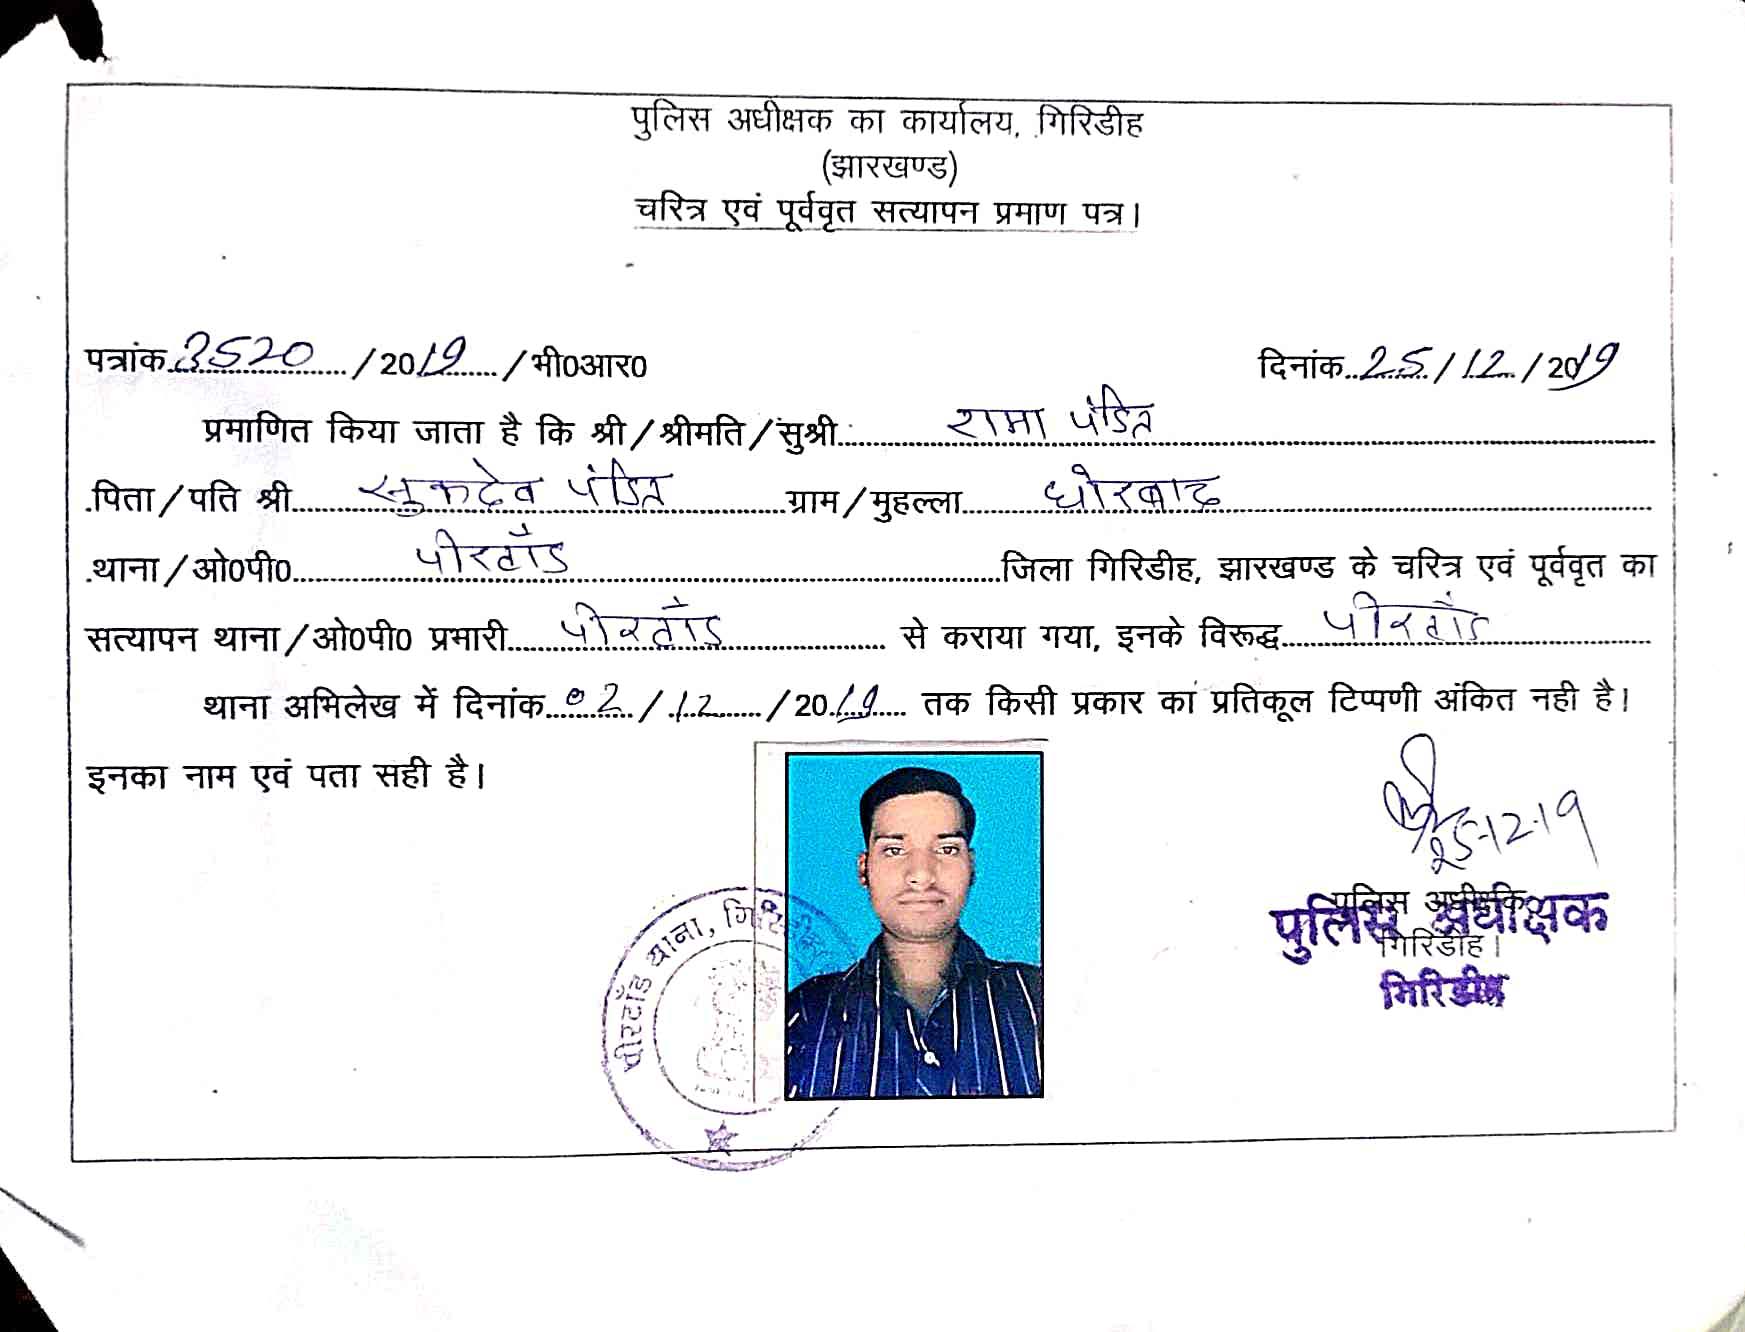 पुलिस अधीक्षक का कार्यालय, गिरिडीह
(झारखण्ड)
चरित्र एवं पूर्ववृत सत्यापन प्रमाण पत्र।
पत्रांक 3520 /2019 /भी0आर0 दिनांक 25/12/2019
प्रमाणित किया जाता है कि श्री/श्रीमति/सुश्री रामा पंडित
पिता/पति श्री सुकदेव पंडित ग्राम/मुहल्ला धोरबाद
थाना/ओ0पी0 पीरटाँड जिला गिरिडीह, झारखण्ड के चरित्र एवं पूर्ववृत का
सत्यापन थाना/ओ0पी0 प्रभारी पीरटाँड से कराया गया, इनके विरूद्ध पीरटाँड
थाना अभिलेख में दिनांक 02/12/2019 तक किसी प्रकार का प्रतिकूल टिप्पणी अंकित नही है।
इनका नाम एवं पता सही है।
25-12-19
पुलिस अधीक्षक
गिरिडीह।
पुलिस अधीक्षक
गिरिडीह
पीरटाँड थाना,